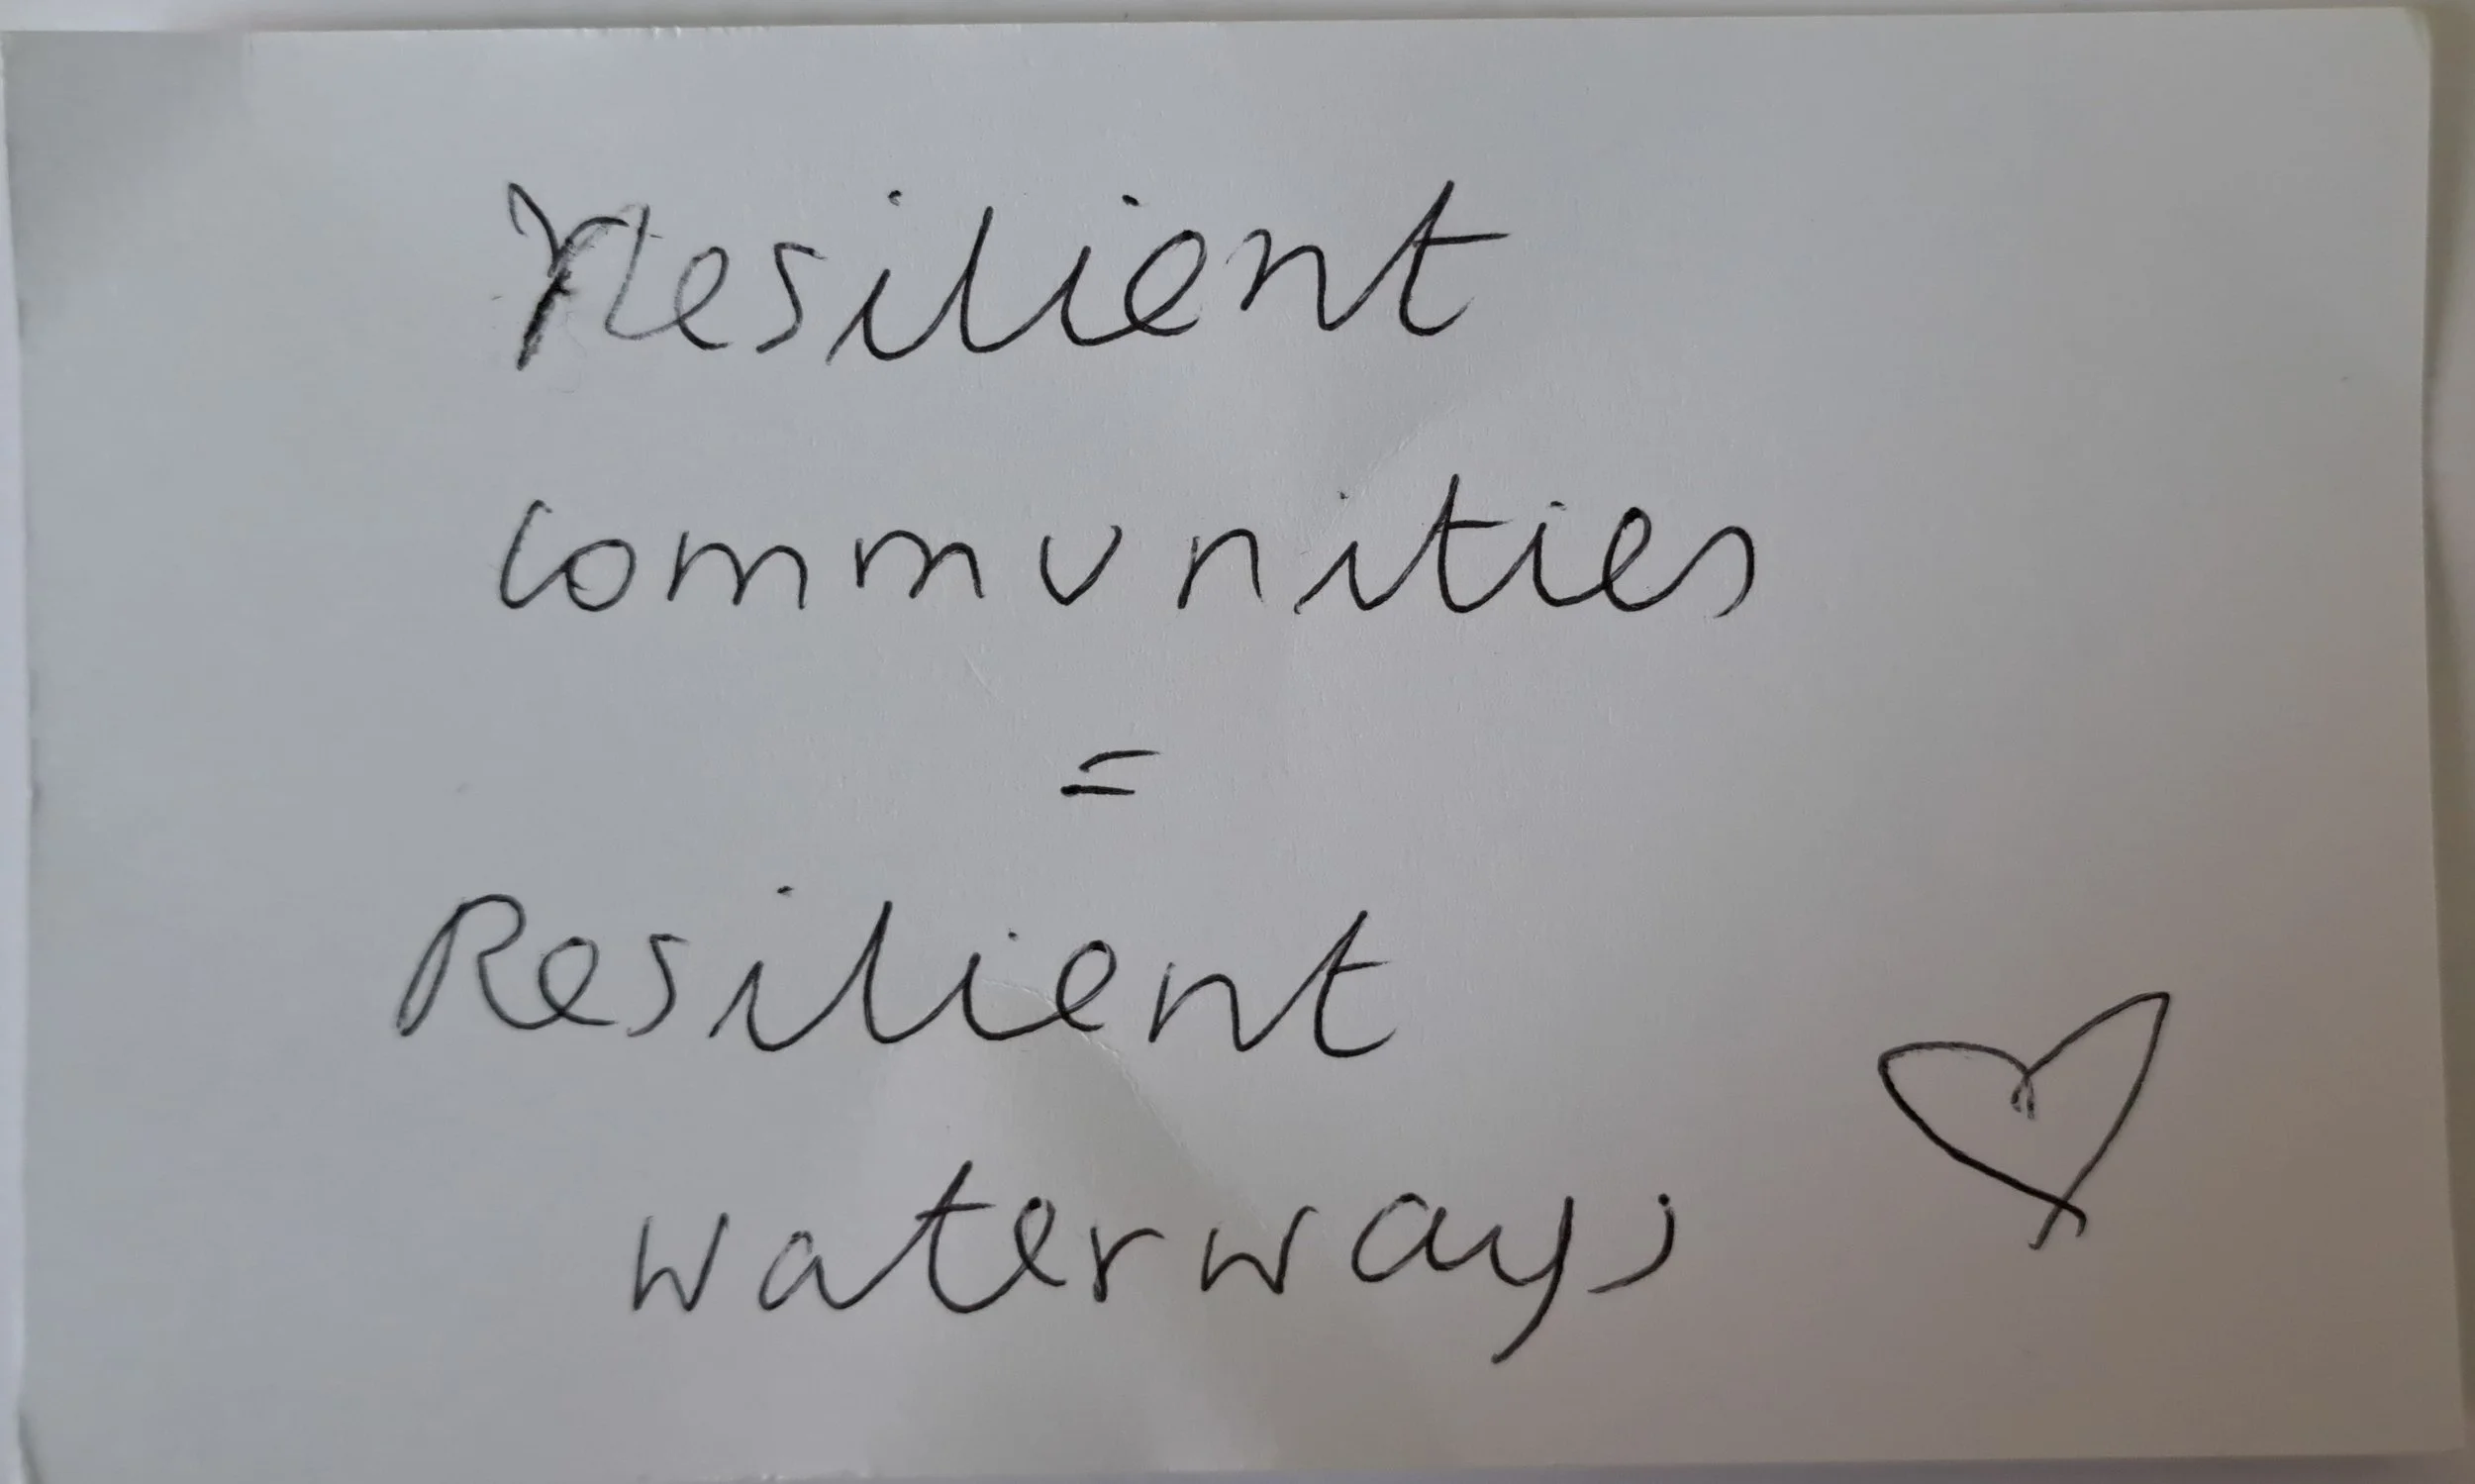 Resilient
communities
=
Resilient
waterways